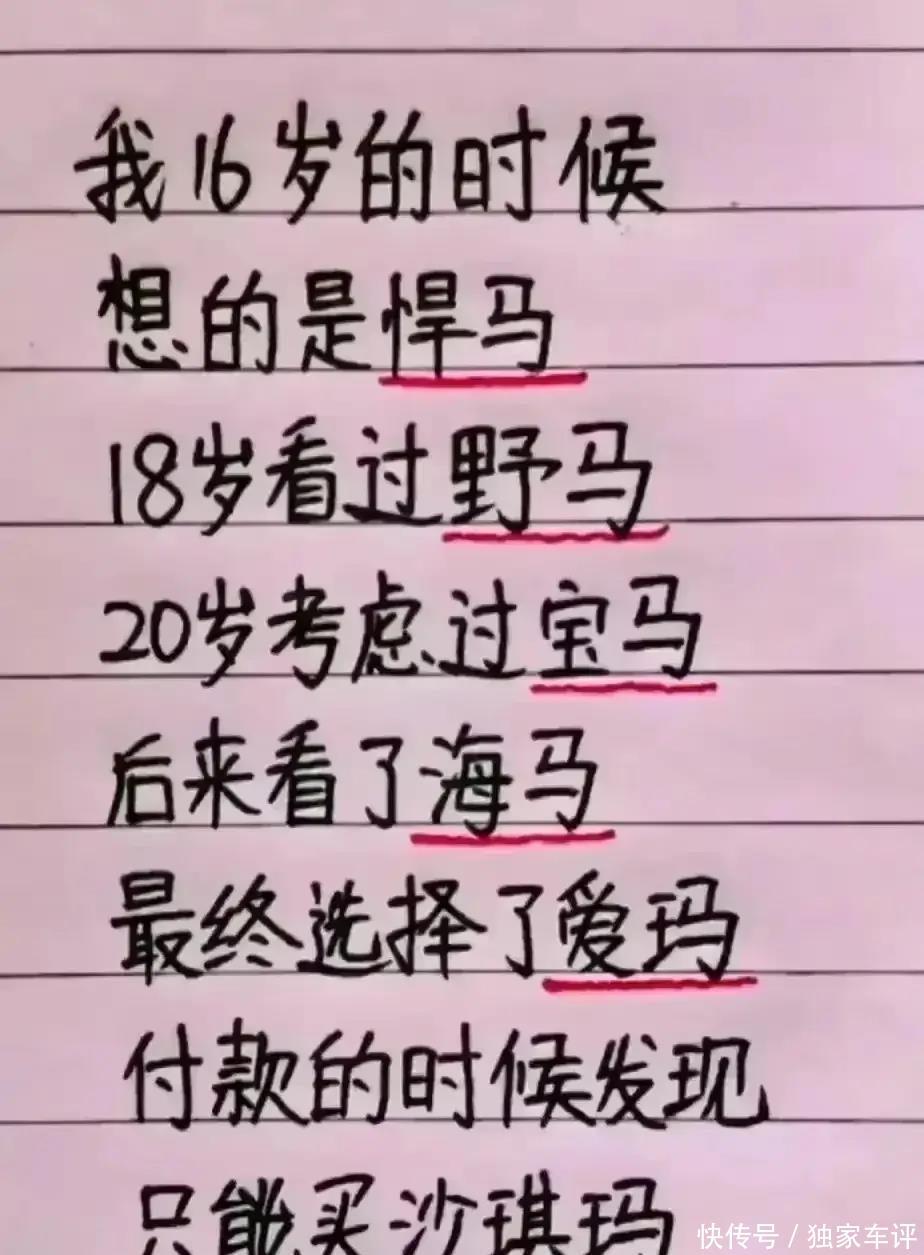 我16岁的时候
想的是悍马
18岁看过野马
20岁考虑过宝马
后来看了海马
最终选择了爱玛
付款的时候发现
只能买沙琪玛
快传号/独家车评